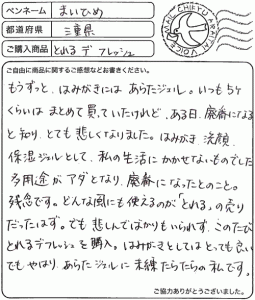 ペンネーム まいひめ
都道府県 三重県
ご購入商品 とれるデフレッシュ
MAIL CHIEKU ARIGATAI VOICE
ご自由に商品に関するご感想などお書きください。
もうずっと、はみがきには あらたジェル。いつも5ヶ
くらいは まとめて買っていたけれど、ある日、廃番になる
と知り、とても悲しくなりました。はみがき、洗顔、
保湿ジェルとして、私の生活に かかせないものでした
多用途が アダとなり、廃番に なったとのこと。
残念です。どんな風にも使えるのが「とれる」の売り
だったはず。でも悲しんでばかりもいられず、このたび
とれるデフレッシュを購入。はみがきとしては とっても良い
でもやはり、あらたジェルに 未練たらたらの私です。
ご協力ありがとうございました。